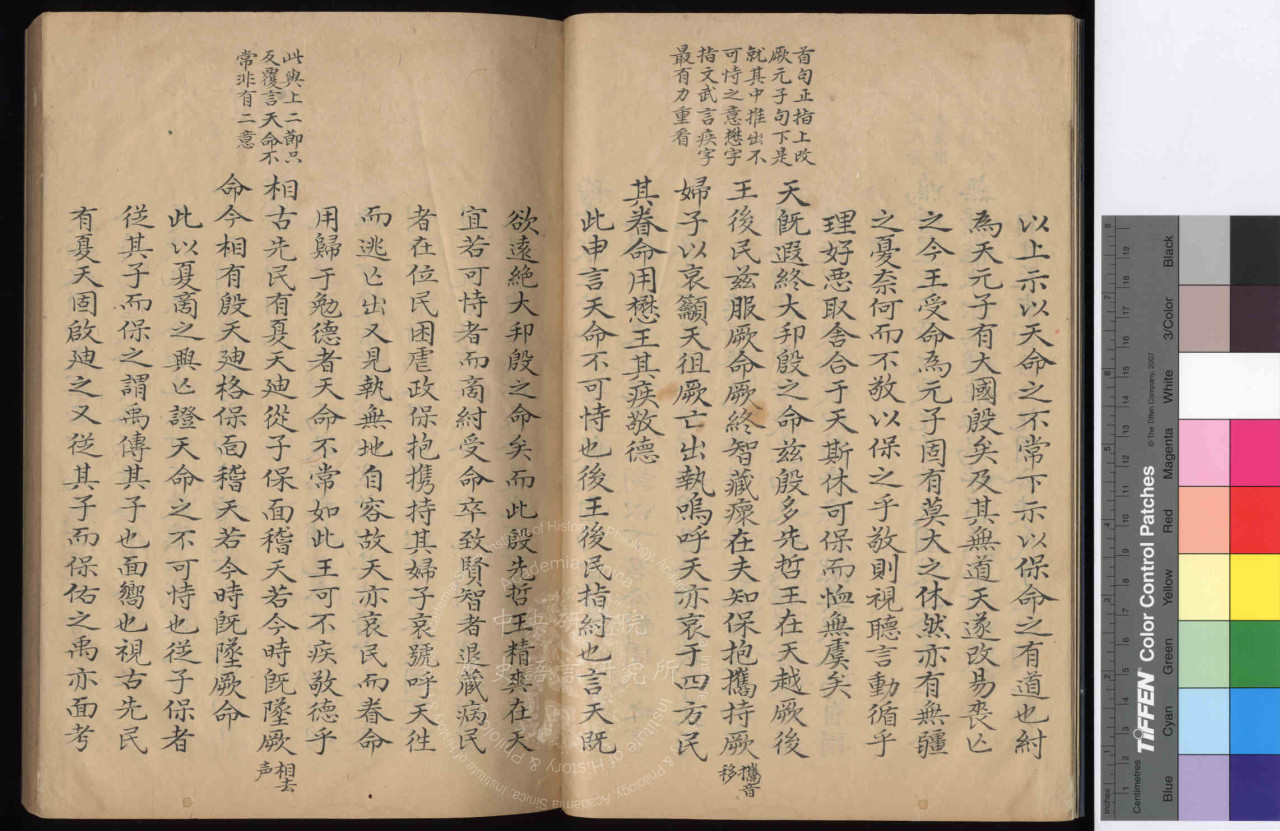 首句正指上改
厥元子句下是
就其中推出不
可恃之意懋字
指文武言疾字
最有力重看
以上示以天命之不常下示以保命之有道也紂
為天元子有大國殷矣及其無道天遂改易喪亾
之今王受命為元子固有莫大之休然亦有無疆
之憂奈何而不敬以保之乎敬則視聽言動循乎
理好惡取舍合于天斯休可保而恤無虞矣
天既遐終大邦殷之命茲殷多先哲王在天越厥後
王後民茲服厥命厥終智藏瘝在夫知保抱攜持厥
攜音
移
婦子以哀籲天徂厥亡出執嗚呼天亦哀于四方民
其眷命用懋王其疾敬德
此申言天命不可恃也後王後民指紂也言天既
此與上二節只
反覆言天命不
常非有二意
欲遠絕大邦殷之命矣而此殷先哲王精爽在天
宜若可恃者而啇紂受命卒致賢智者退藏病民
者在位民困虐政保抱携持其婦子哀號呼天徃
而逃亾出又見執無地自容故天亦哀民而眷命
用歸于勉德者天命不常如此王可不疾敬德乎
相古先民有夏天廸從子保面稽天若今時既墜厥
相去
声
命今相有殷天廸格保面稽天若今時既墜厥命
此以夏啇之興亾證天命之不可恃也從子保者
從其子而保之謂禹傳其子也面嚮也視古先民
有夏天固啟廸之又從其子而保佑之禹亦面考
中央研究院
史語言研究所
Academia Sinica
Institute of History & Philology, Academia Sinica
TIFFEN Color Control Patches
© The Tiffen Company, 2007
Centimetres
Inches
Blue
Cyan
Green
Yellow
Red
Magenta
White
3/Color
Black